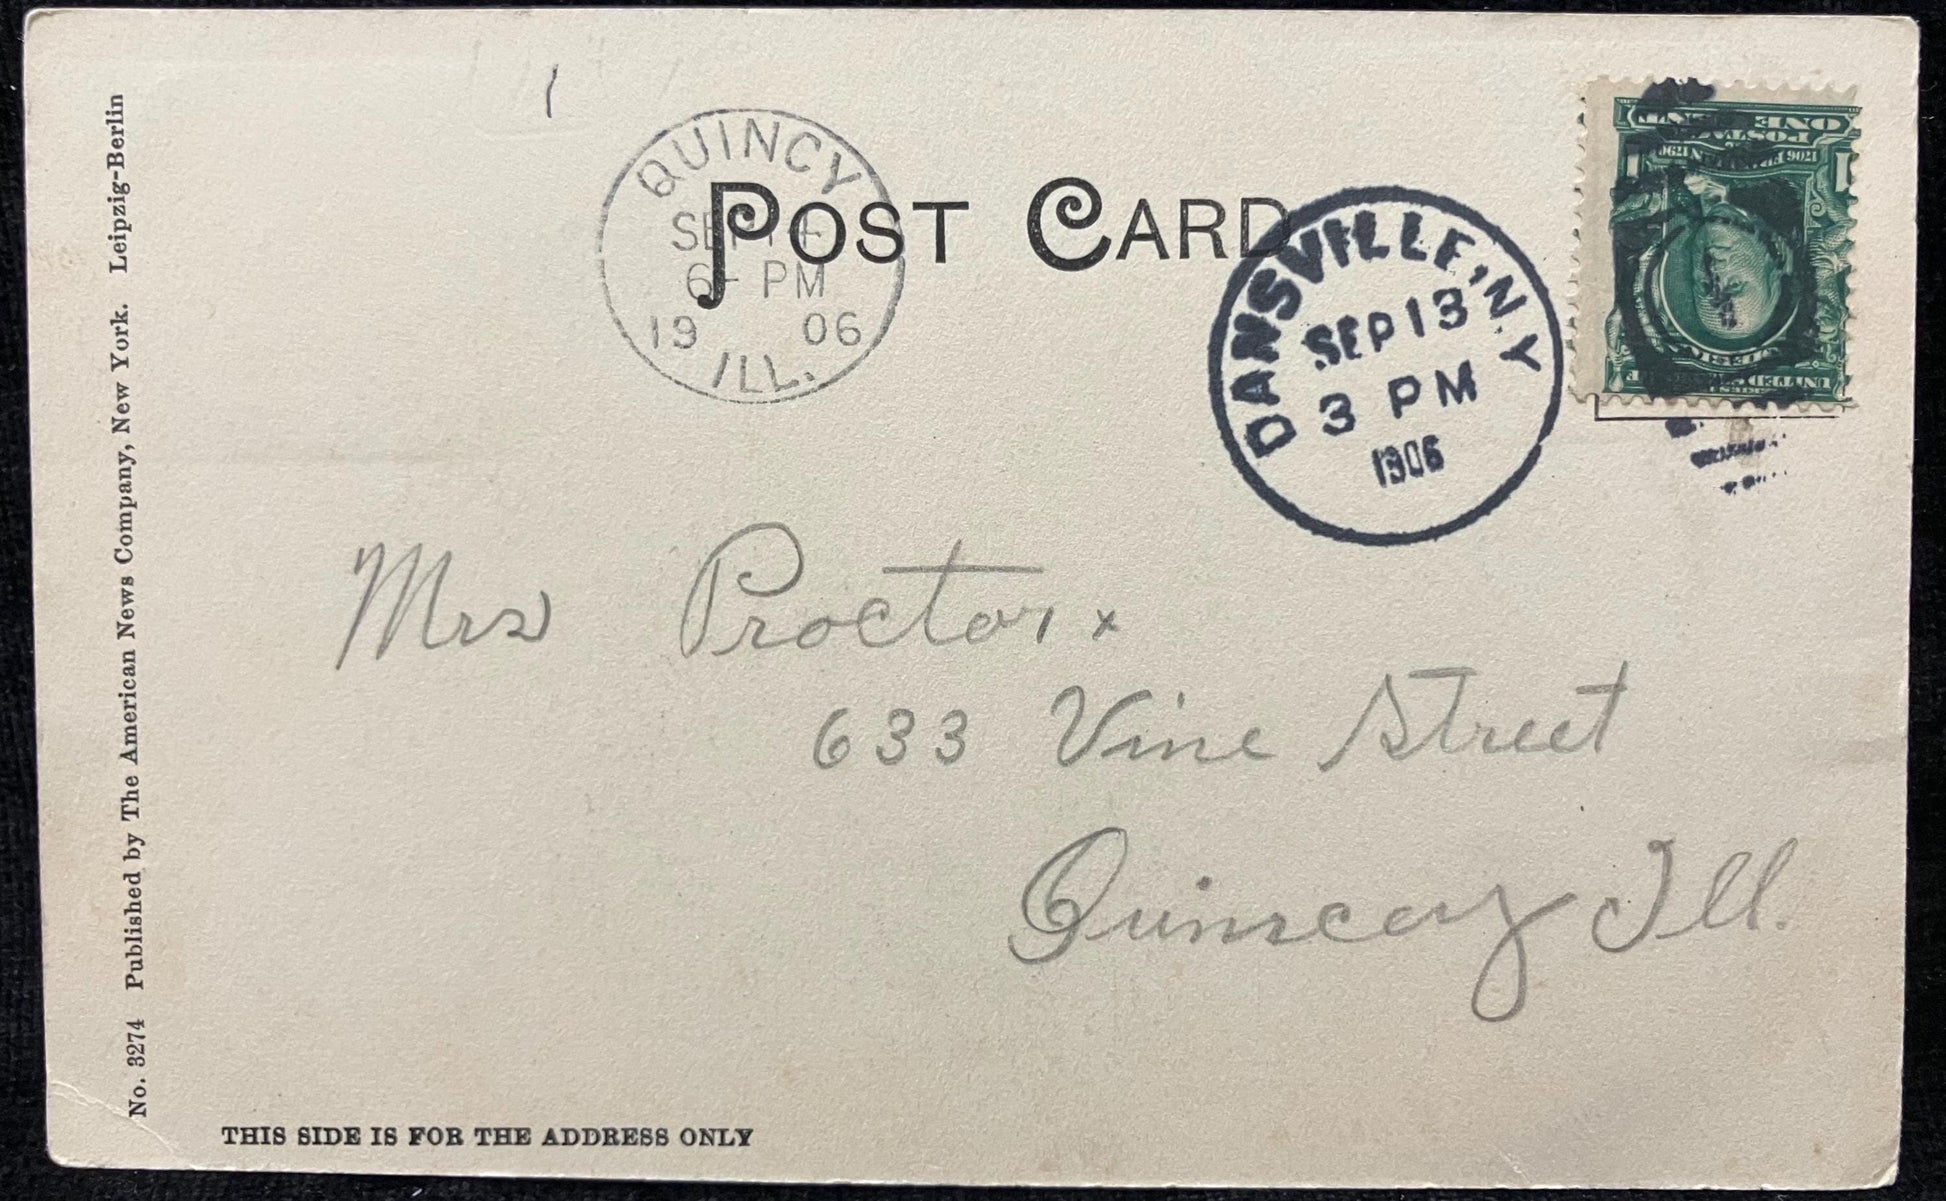 POST CARD
QUINCY
6- PM
19 06
ILL.
DANSVILLE, N.Y
SEP 13
3 PM
1906
ONE
POSTAGE
UNITED
No. 3274 Published by The American News Company, New York. Leipzig-Berlin
Mrs Proctor x
633 Vine Street
Quincy Ill.
THIS SIDE IS FOR THE ADDRESS ONLY